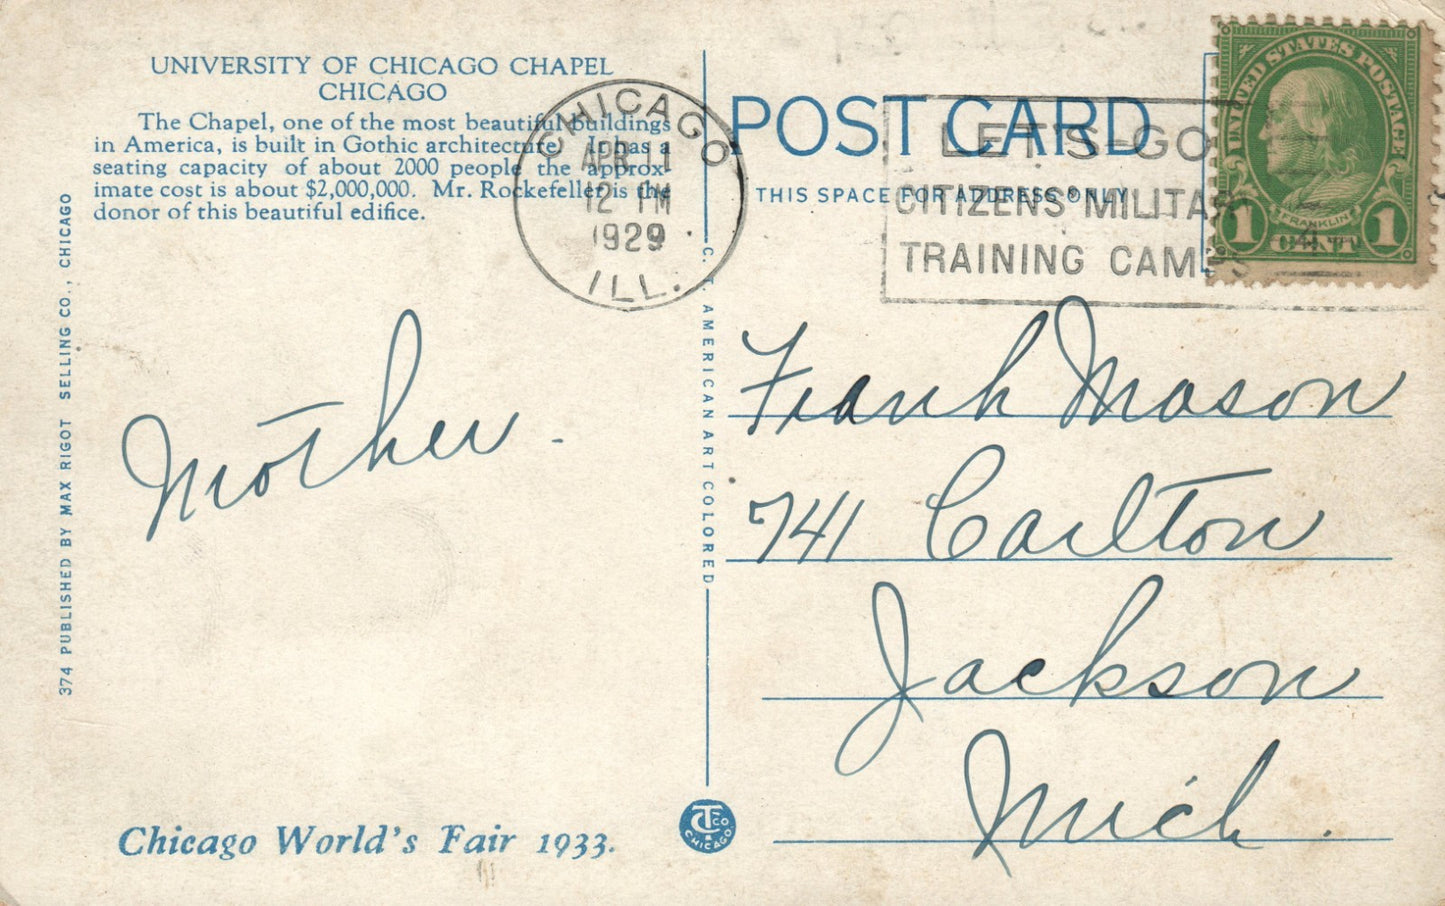 UNIVERSITY OF CHICAGO CHAPEL
CHICAGO
The Chapel, one of the most beautiful buildings
in America, is built in Gothic architecture. It has a
seating capacity of about 2000 people the approx-
imate cost is about $2,000,000. Mr. Rockefeller is the
donor of this beautiful edifice.
374 PUBLISHED BY MAX RIGOT SELLING CO., CHICAGO
CHICAGO
APR 11
12 PM
1929
ILL.
C. T. AMERICAN ART COLORED
POST CARD
THIS SPACE FOR ADDRESS ONLY
LET'S-GO
CITIZENS MILITARY
TRAINING CAMPS
UNITED STATES POSTAGE
FRANKLIN
1 CENT 1
Mother.
Frank Mason
741 Carlton
Jackson
Mich.
Chicago World's Fair 1933.
CT CO
CHICAGO